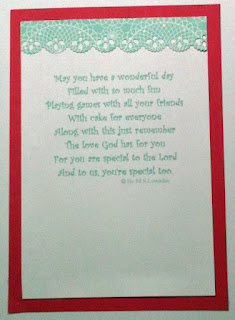 May you have a wonderful day
Filled with so much fun
Playing games with all your friends
With cake for everyone
Along with this just remember
The love God has for you
For you are special to the Lord
And to us, you're special too.
©